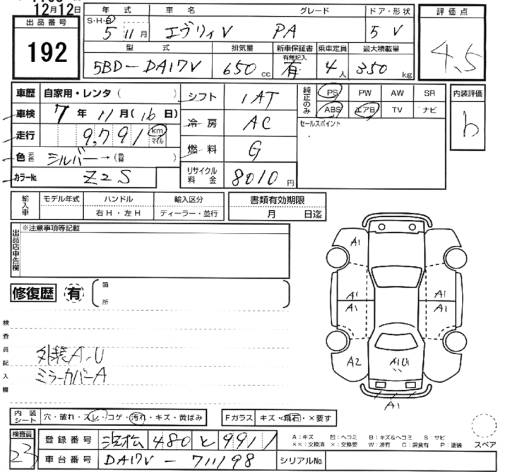 12月12日
出品番号
192
年式 車名 グレード ドア・形状
S・H・
5 11月 エヴリィV PA 5 V
型式 排気量 新車保証書 乗車定員 最大積載量
有無記入
5BD-DA17V 650 cc 有 4人 350 kg
評価点
4.5
車歴 自家用・レンタ( )
車検 7年 11月(16日)
走行 9,791 km マイル
色 シルバー→( )
カラーNo. Z2S
シフト 1AT
冷房 AC
燃料 G
リサイクル料金 8010円
純正のみ
PS PW AW SR
ABS エアB TV ナビ
セールスポイント
内装評価
b
輸入車
モデル年式 ハンドル 輸入区分
右H・左H ディーラー・並行
書類有効期限
月 日迄
出品店申告欄
※注意事項等記載
修復歴 有
箇所
検査員記入欄
外装A.U
ミラーカバーA
A1
A1 A1
A2 A1U
A1
内装シート 穴・破れ・スレ・コゲ・汚れ・キズ・黄ばみ
Fガラス キズ・飛石・×要す
スペア
検査員
23
登録番号 浜松 480 と 9911
車台番号 DA17V-711198
シリアルNo.
A：キズ U：ヘコミ B：キズ&ヘコミ S：サビ
××：交換済 ×：交換要 W：波打 C：腐食有 P：塗装